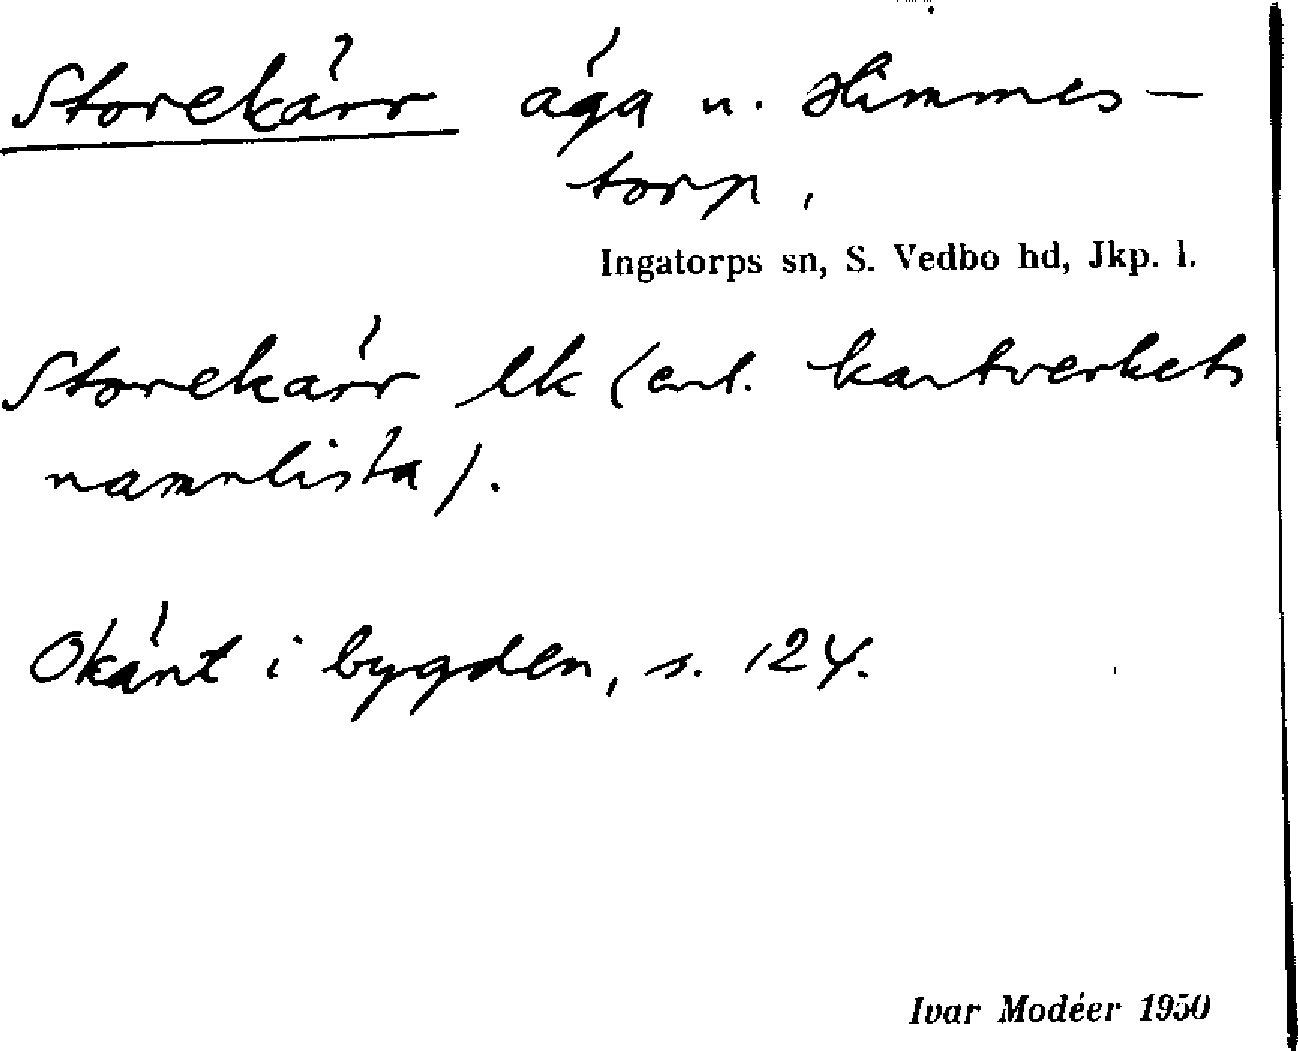 Storekärr äga u. Himmes-
torp,
Ingatorps sn, S. Vedbo hd, Jkp. l.
Storekärr ek (enl. kartverkets
namnlista).
Okänt i bygden, s. 124.
Ivar Modéer 1950